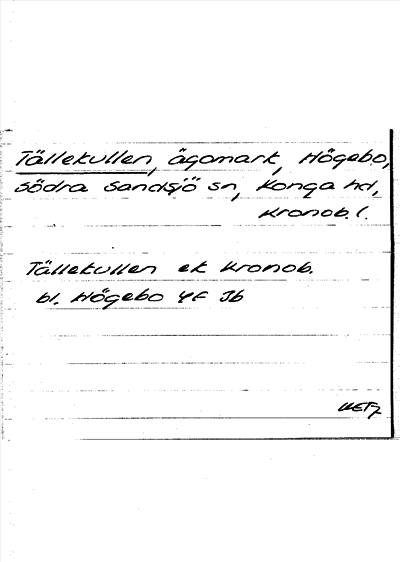 Tällekullen, ägomark, Högebo,
Södra Sandsjö sn, Konga hd,
Kronob. l.
Tällekullen ek Kronob.
bl. Högebo 4F Jb